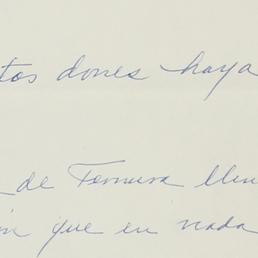 tos dones haya
de Ternura llen
ón que en nada